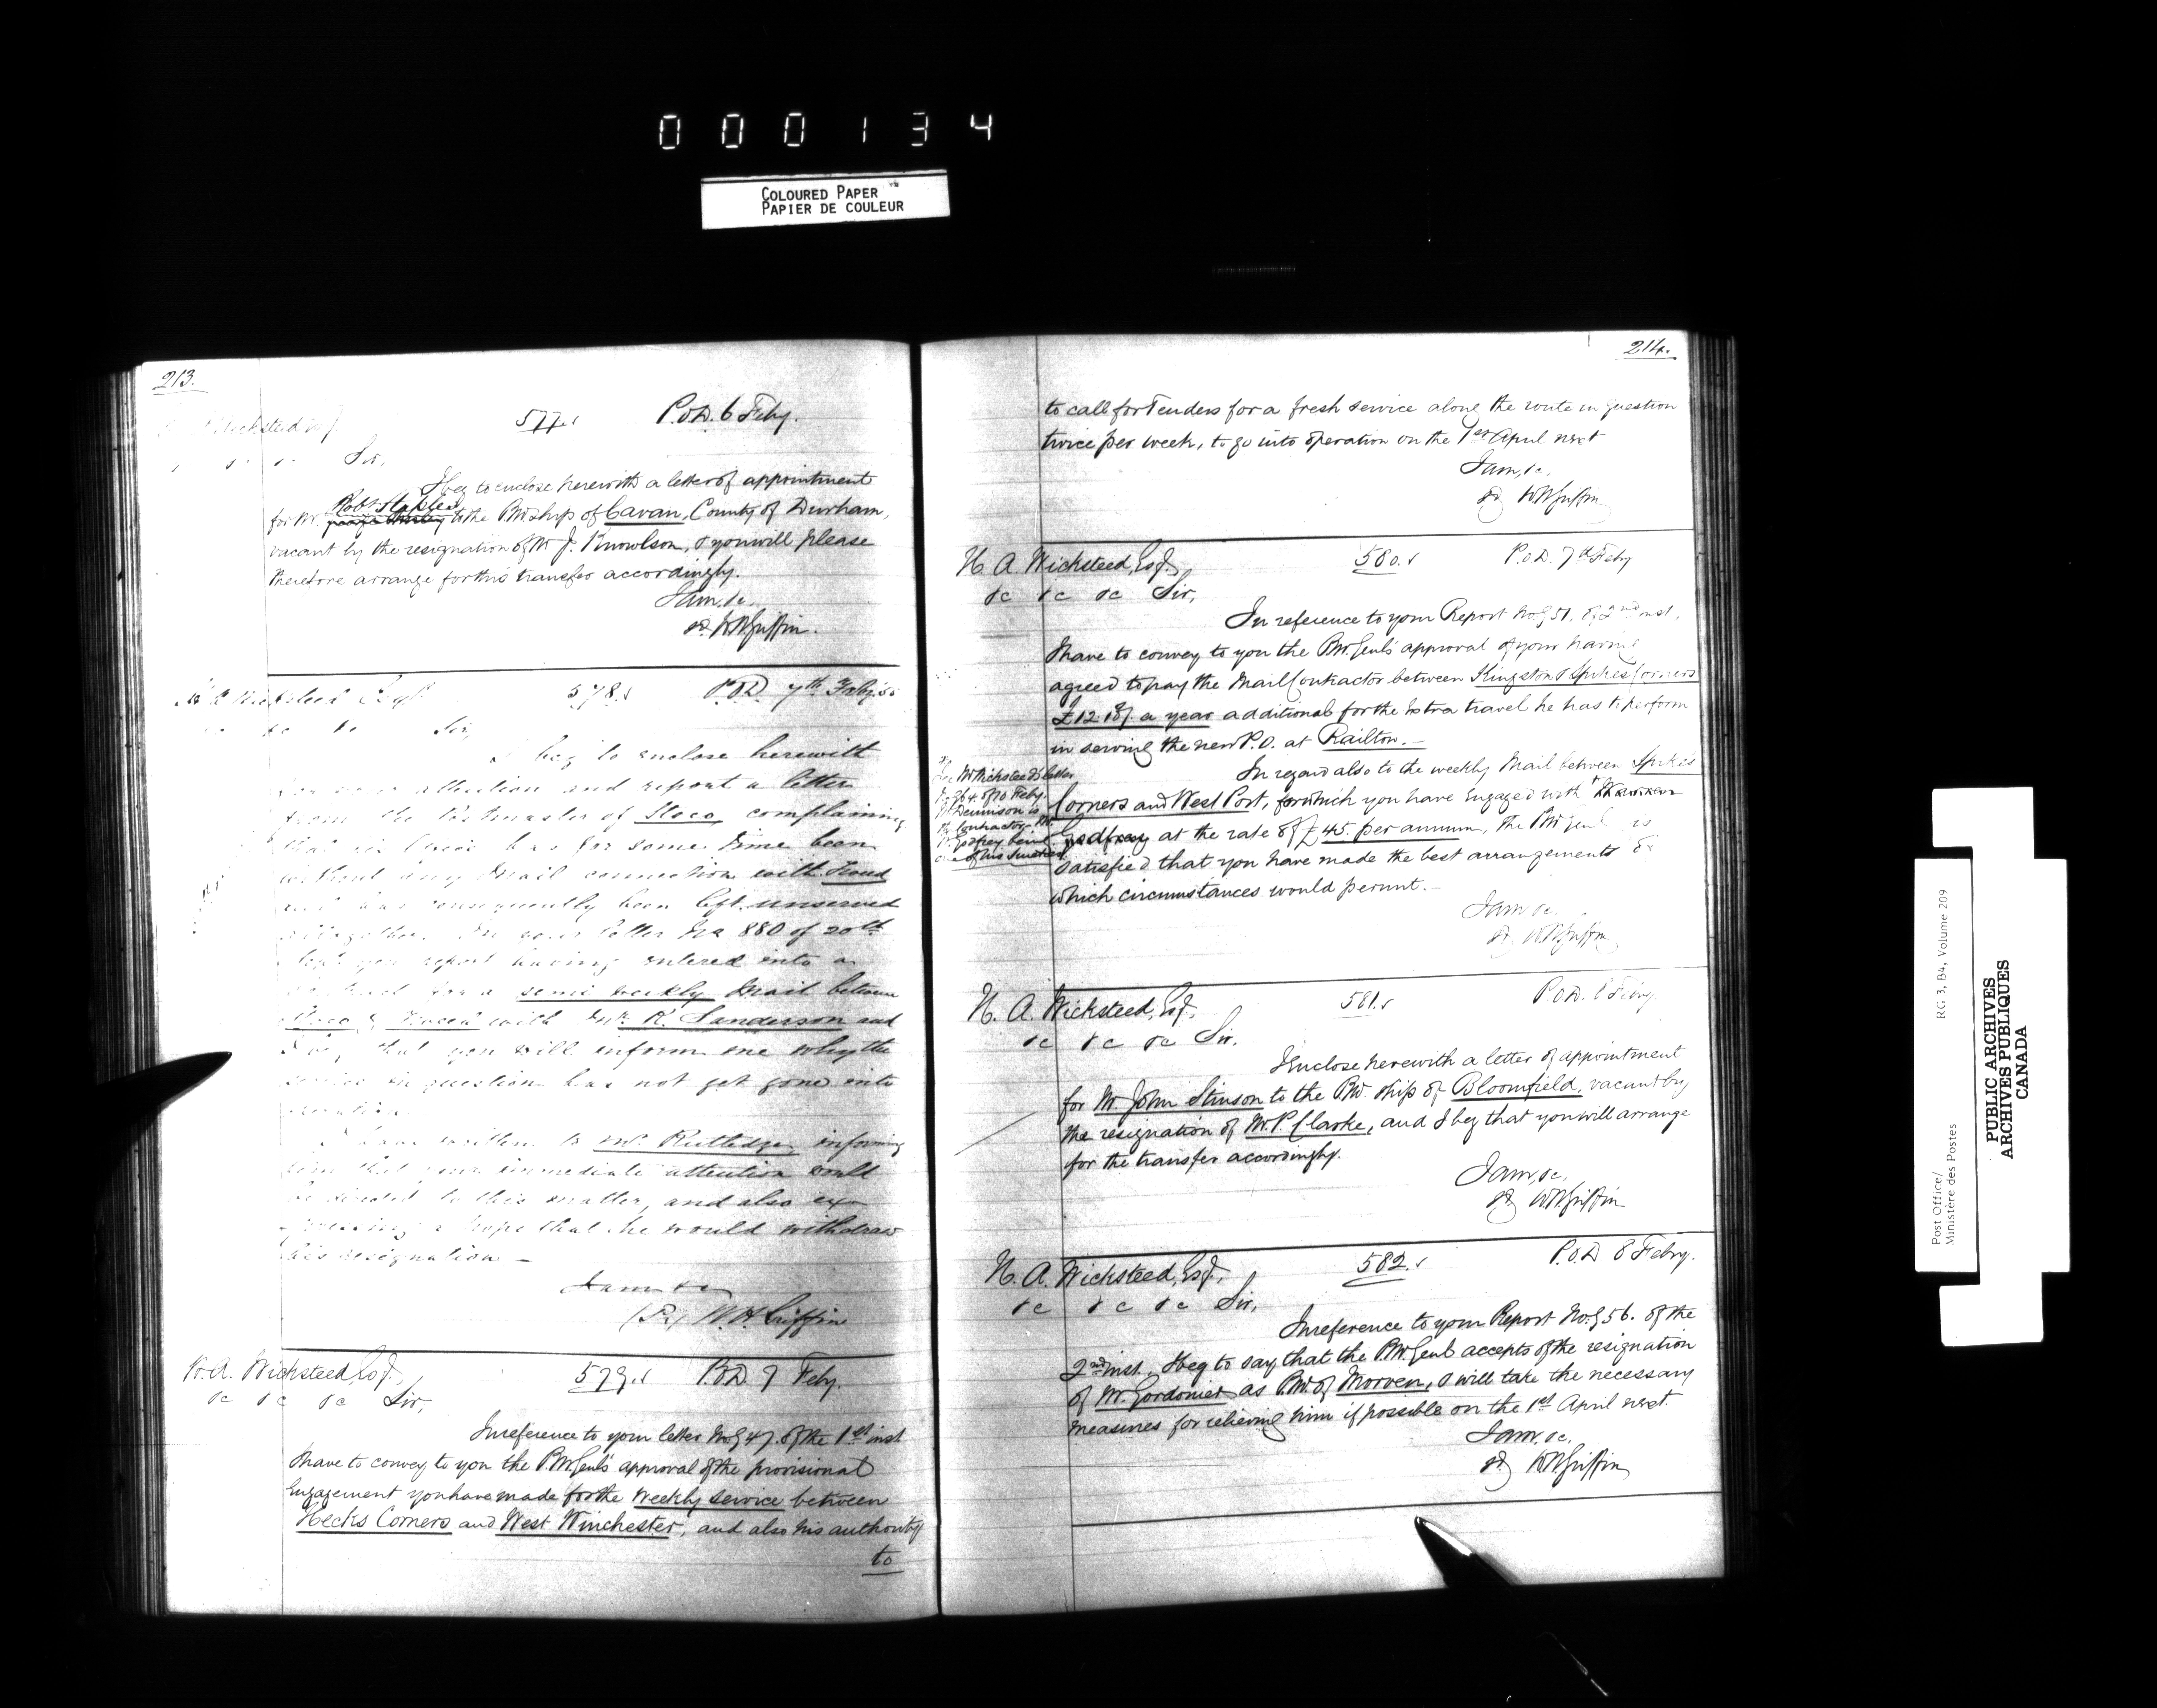 000134
COLOURED PAPER
PAPIER DE COULEUR
213.
Wicksteed
577.
P.O.D. 6 Feby.
Sir,
I beg to enclose herewith a letter of appointment
Robt Staples
for Mr. to the P.M.ship of Cavan, County of Durham,
vacant by the resignation of Mr J. Knowlson, & you will please
therefore arrange for this transfer accordingly.
I am, &c.
sd. W H Griffin.
Wicksteed Esqr
578.
P.O.D. 7th Feby 55
&c &c Sir,
I beg to enclose herewith
attention and report a letter
from the Postmaster of Roco complaining
that for some time been
without any mail connection with
and has consequently been left unserved
altogether. In your letter No 880 of 20th
you report having entered into a
for a semi weekly Mail between
& with Mr. R. Sanderson and
I beg that you will inform me why the
service in question has not yet gone into
operation.
I have written to Mr. Rutledge informing
him that your immediate attention would
be directed to this matter, and also ex-
pressing a hope that he would withdraw
his resignation –
I am &c
(Sd) W. H. Griffin
N. A. Wicksteed, Esq.,
579.
P.O.D. 7 Feby.
&c &c &c Sir,
In reference to your letter No. 947. of the 1st inst
I have to convey to you the P.M.Genl's approval of the provisional
Engagement you have made for the weekly service between
Hecks Corners and West Winchester, and also his authority
to
214.
to call for Tenders for a fresh service along the route in question
twice per week, to go into operation on the 1st April next
I am, &c.
sd W H Griffin
N. A. Wicksteed, Esq.,
580.
P.O.D. 7th Feby
&c &c &c Sir,
In reference to your Report No. 951. of 2nd inst,
I have to convey to you the P.M.Genl's approval of your having
agreed to pay the Mail Contractor between Kingston & Spikes Corners
£12.10/. a year additional for the Extra travel he has to perform
in serving the new P.O. at Railton. –
In regard also to the weekly Mail between Spike's
Corners and West Port, for which you have Engaged with
Godfrey at the rate of £45. per annum, the P.M.Genl is
satisfied that you have made the best arrangements
which circumstances would permit. –
See Mr Wicksteed's letter
964. of 10 Feby.
Mr Dennison is
the Contractor, Mr.
Godfrey being
one of his Sureties.
I am &c.
sd W H Griffin
N. A. Wicksteed, Esq.,
581.
P.O.D. 8 Feby
&c &c &c Sir,
I enclose herewith a letter of appointment
for Mr. John Stinson to the P.M. ship of Bloomfield, vacant by
the resignation of Mr. P. Clarke, and I beg that you will arrange
for the transfer accordingly.
I am, &c.
sd. W H Griffin
N. A. Wicksteed, Esq.,
582.
P.O.D. 8 Feby.
&c &c &c Sir,
In reference to your Report No. 956. of the
2nd inst., I beg to say that the P.M.Genl accepts of the resignation
of Mr. Gordonier as P.M. of Morven, & will take the necessary
measures for relieving him if possible on the 1st April next.
I am, &c.
sd W H Griffin
Post Office/
Ministère des Postes
RG 3, B4, Volume 209
PUBLIC ARCHIVES
ARCHIVES PUBLIQUES
CANADA